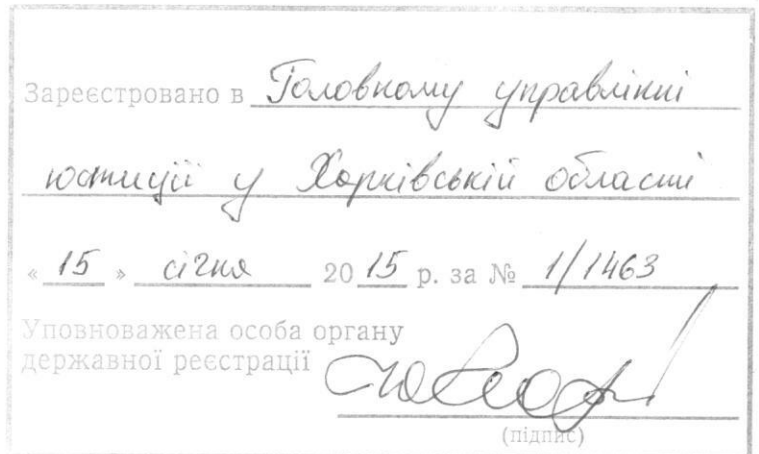 Зареєстровано в Головному управлінні
юстиції у Харківській області
« 15 » січня 2015 р. за № 1/1463
Уповноважена особа органу
державної реєстрації
(підпис)